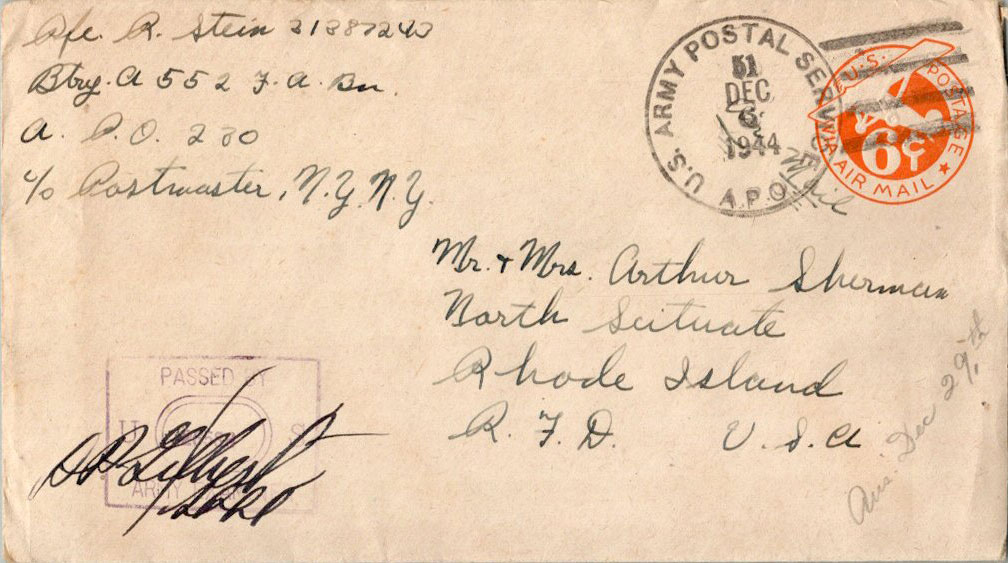 Pfc. R. Stein 31387243
Btry. A 552 F. A. Bn.
A. P. O. 230
c/o Postmaster, N.Y. N.Y.
U.S. ARMY POSTAL SERVICE
51
DEC
6
1944
A.P.O.
U.S. POSTAGE
6¢
VIA AIR MAIL
Mr. + Mrs. Arthur Sherman
North Scituate
Rhode Island
R. F. D. U. S. A.
PASSED BY
U S
ARMY
Ans Dec 29th